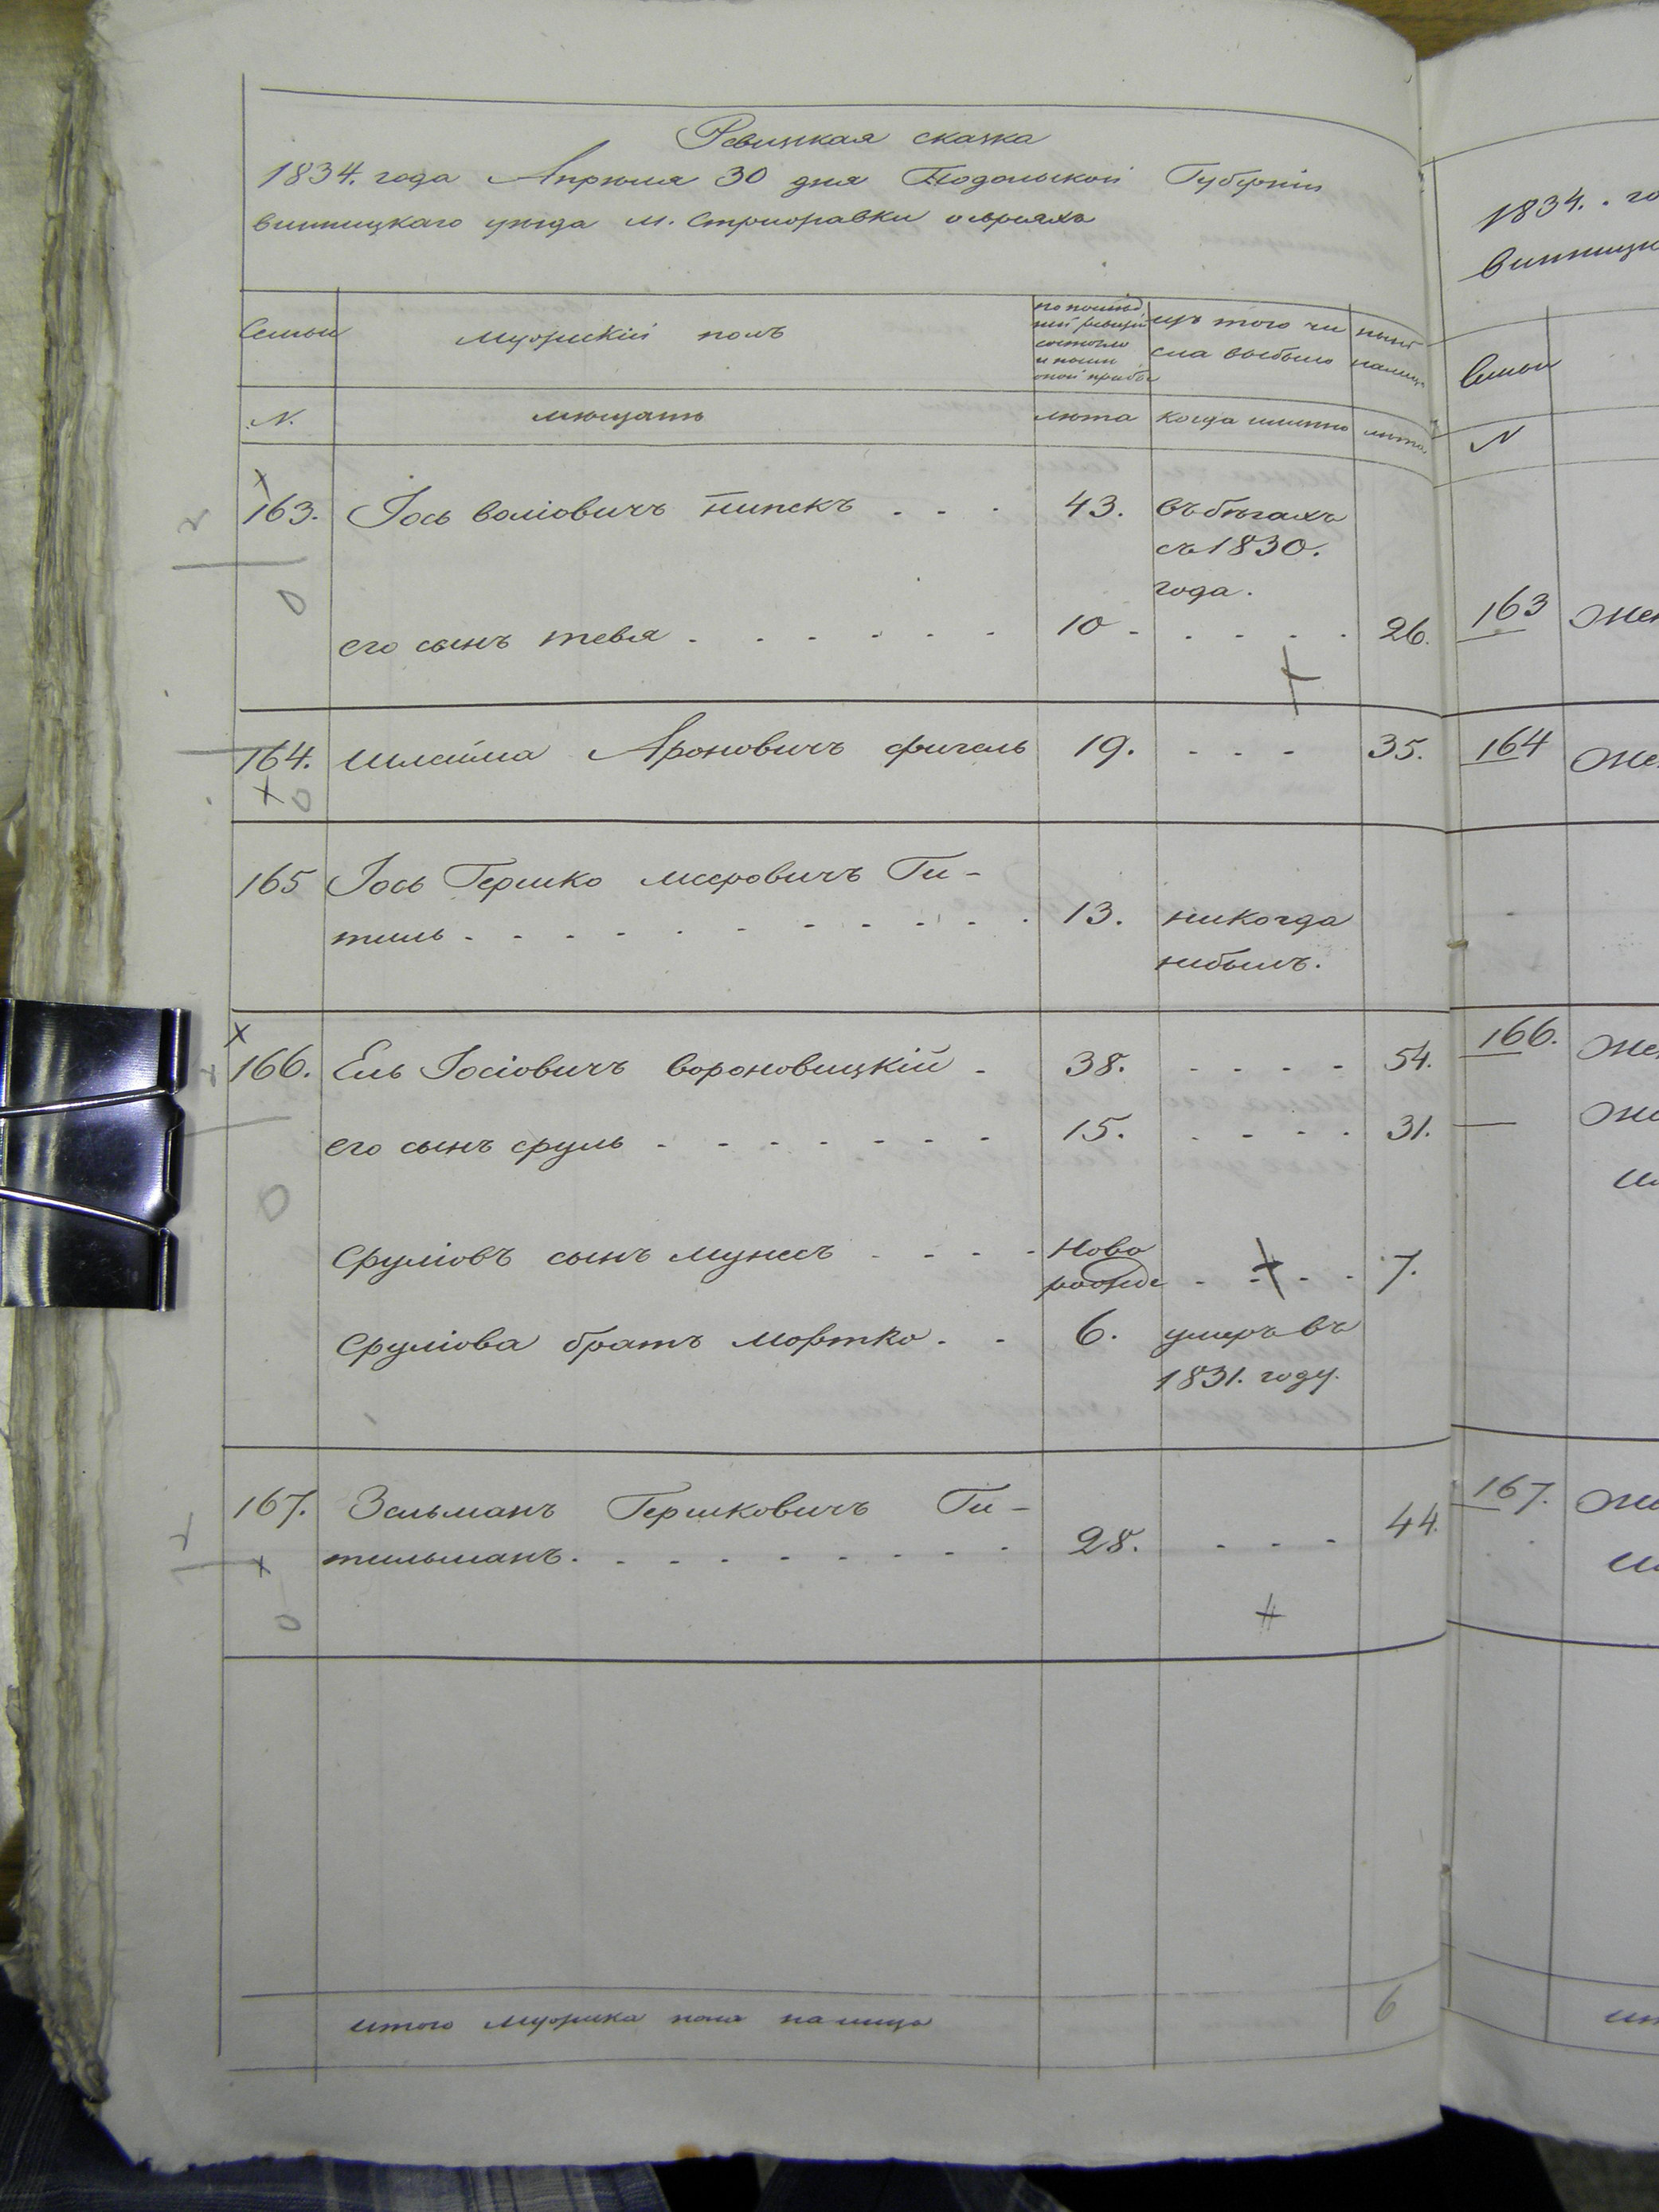 Ревизская сказка
1834. года Апреля 30 дня Подольской Губерніи
винницкаго уезда м. Стрижавки о евреяхъ
Семьи
мужескій полъ
по послед
ней ревизіи
состояло
и после
оной прибы
изъ того чи
сла выбыло
ныне
налицо
N.
мещане
лета
когда именно
лета
163. Іось воліовичъ пинскъ . . . 43. въ бегахъ
съ 1830.
года.
его сынъ тевя . . . . . . 10 - . . . . 26.
164. Шлейма Ароновичъ фигель 19. - - - 35.
165 Іось Гершко мееровичъ Ги-
тиль . . . . . . . . . . 13. никогда
небылъ.
166. Ель Іосіовичъ вороновицкій - 38. - - - - 54.
его сынъ сруль - - - - - - - 15. - - - - 31.
Сруліовъ сынъ мунесъ - - - - Ново
рожде - - - - 7.
Сруліова братъ мортко. - - 6. умеръ въ
1831. году.
167. Зельманъ Гершковичъ Ги-
тильманъ. - - - - - - - - 28. - - - 44.
итого мужеска пола налицо 6
1834. . го
винниц
Семьи
N
163 Же
164 Же
166. Же
167. Же